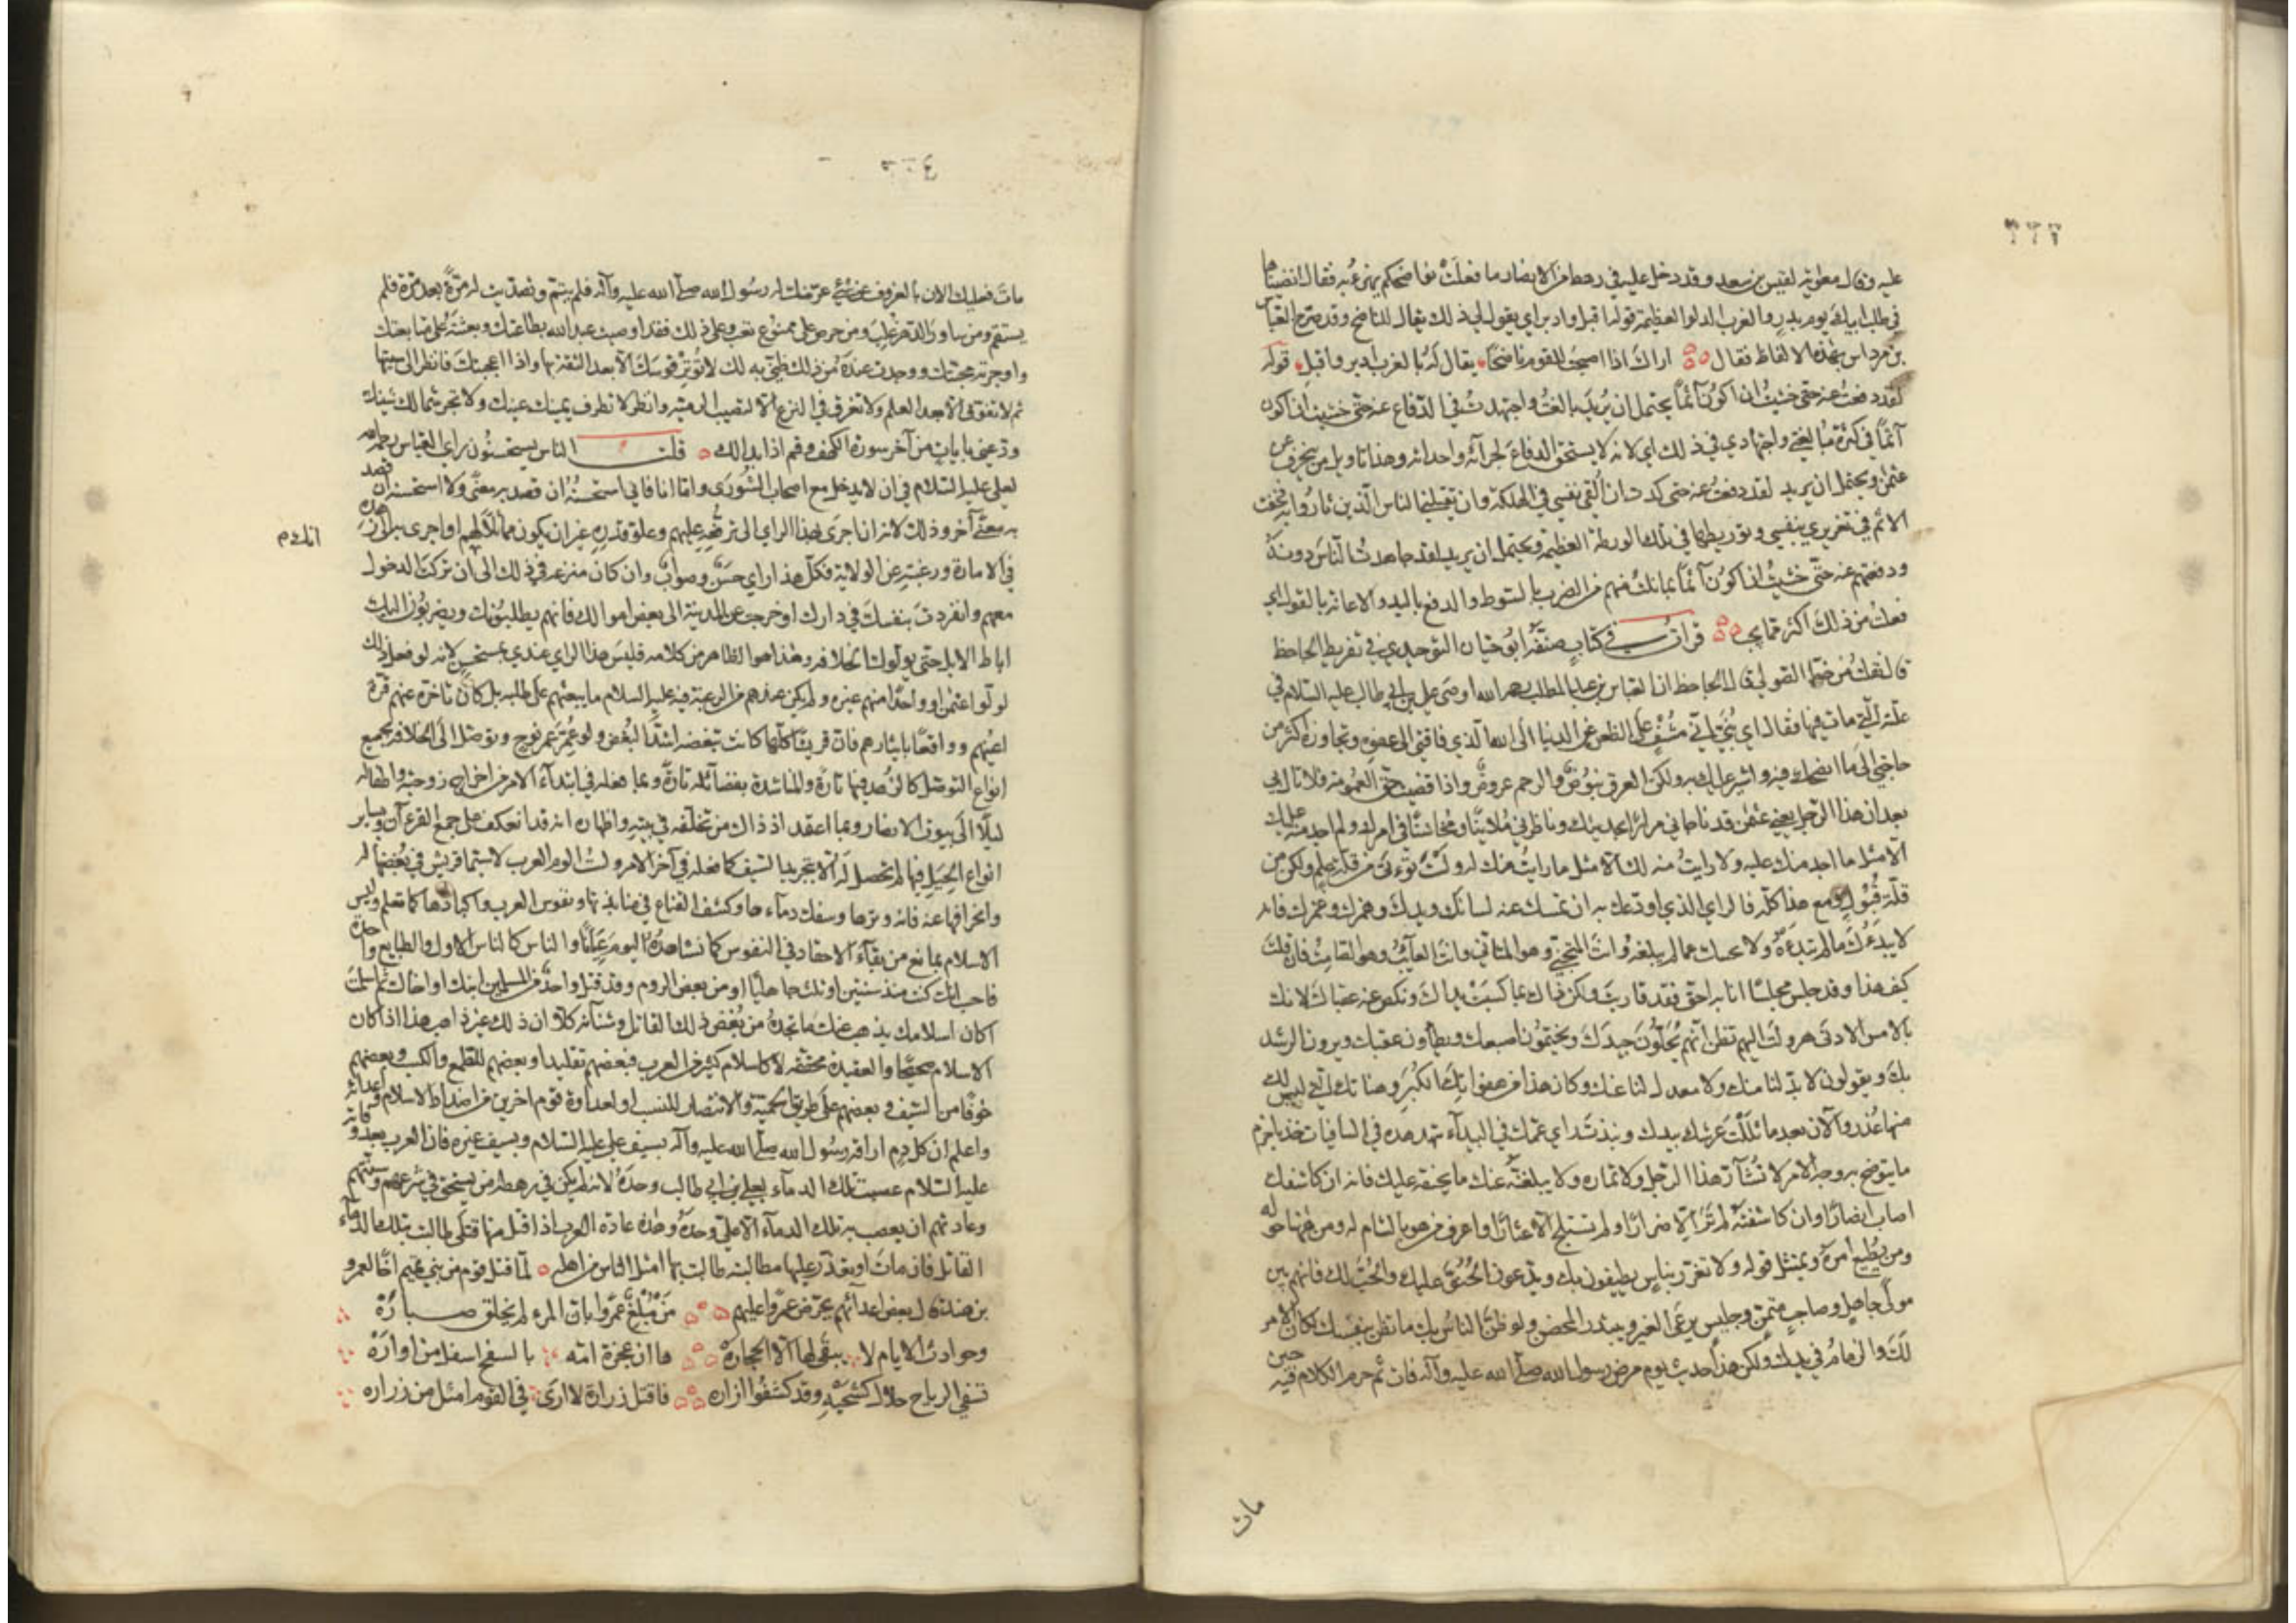 ٢٢٢
عليه وقال معوية لقيس بن سعد وقد دخل عليه في رهط من الانصار ما فعلت نواضحكم يهزء به فقال انضيناها
في طلب ابيك يوم بدر والغرب الدلو العظيمة قوله اقبل وادبر اي يقول لي ذلك كما يقال للناضح وقد صرح العباس
بن مرداس بهذه الالفاظ فقال اراك اذا اصبحت للقوم ناضحا يقال له بالغرب ادبر واقبل قوله
لقد دفعت عنه حتى خشيت ان اكون آثما يحتمل ان يريد بالغت واجتهدت في الدفاع عنه حتى خشيت ان اكون
آثما في كثرة مبالغتي واجتهادي في ذلك اي لانه لا يستحق الدفاع عنه لجرائمه واحداثه وهذا تاويل من ينحرف عن
عثمن ويحتمل ان يريد لقد دفعت عنه حتى كدت ان القي نفسي في الهلكة وان يقتلني الناس الذين ثاروا به فخفت
الاثم في تغريري بنفسي وتوريطها في تلك الورطة العظيمة ويحتمل ان يريد لقد جاهدت الناس دونه
ودفعتهم عنه حتى خشيت ان اكون آثما بما نلت منهم من الضرب بالسوط والدفع باليد والاعانة بالقول اي
فعلت من ذلك اكثر مما يجب قرات في كتاب صنفه ابو حيان التوحيدي في تقريظ الجاحظ
قال نقلت من خط الصولي قال الجاحظ ان العباس بن عبد المطلب رحمه الله اوصى علي بن ابي طالب عليه السلام في
علته التي مات فيها فقال اي بني اني مشف على الظعن عن الدنيا الى الله الذي فاقتي الى عفوه وتجاوزه اكثر من
حاجتي الى ما انصحك فيه واشير عليك به ولكن العرق نبوض والرحم عروض واذا قضيت حق العمومة فلا ابالي
بعد ان هذا الرجل يعني عثمن قد ناجاني مرارا بحديثك وناظرني ملاينا ومخاشنا في امرك ولم اجد منه عليك
الا مثل ما اجد منك عليه ولا رايت منه لك الا مثل ما رايت منك له ولست تؤتى من قلة علم ولكن من
قلة قبول ومع هذا كله فالراي الذي اودعك به ان تمسك عنه لسانك ويدك وهمزك وغمزك فانه
لا يبدءك ما لم تبدءه ولا يجيبك عما لم يبلغه وانت المتجني وهو المتاني وانت العائب وهو الصامت فان قلت
كيف هذا وقد جلس مجلسا انا به احق فقد قاربت ولكن ذاك بما كسبت يداك ونكص عنه عقباك لانك
بالامس الادنى هرولت اليهم تظن انهم يحلون جيدك ويختمون اصبعك ويطاون عقبك ويرون الرشد
بك ويقولون لا بد لنا منك ولا معدل لنا عنك وكان هذا من هفواتك الكبر وهناتك التي ليس لك
منها عذر والآن بعد ما ثللت عرشك بيدك ونبذت راي عمك في البيداء يتدهده في السافيات خذ باحزم
ما يتوضح به وجه الامر لا تشار هذا الرجل ولا تماره ولا يبلغنه عنك ما يحنقه عليك فانه ان كاشفك
اصاب انصارا وان كاشفته لم تر الا ضرارا ولم تستلج الا عثارا واعرف من هو بالشام له ومن هاهنا حوله
ومن يطيع امره ويمتثل قوله ولا تغترر بناس يطيفون بك ويدعون الحنو عليك والحب لك فانهم بين
مولى جاهل وصاحب متمن وجليس يرعى العين ويبتدر المحضر ولو ظن الناس بك ما تظن بنفسك لكان الامر
لك والزمام في يدك ولكن هذا حديث يوم مرض رسول الله صلى الله عليه وآله فات ثم حرم الكلام فيه حين
مات
مات فعليك الان بالعزوف عن شئ عرضك له رسول الله صلى الله عليه وآله فلم يتم وتصديت له مرة بعد مرة فلم
يستقم ومن ساور الدهر غلب ومن حرص على ممنوع تعب وعلى ذلك فقد اوصيت عبد الله بطاعتك وبعثته على متابعتك
واوجرته محبتك ووجدت عنده من ذلك ظني به لك لا توتر قوسك الا بعد الثقة بها واذا اعجبتك فانظر الى سيتها
ثم لا تفوق الا بعد العلم ولا تغرق في النزع الا لتصيب الرمية وانظر لا تطرف يمينك عينك ولا تجر شمالك شينك
ودعني بايات من آخر سورة الكهف وقم اذا بدا لك قلت الناس يستحسنون راي العباس رحمه الله
لعلي عليه السلام في ان لا يدخل مع اصحاب الشورى واما انا فاني استحسنه ان قصد به معنى ولا استحسنه ان قصد
به معنى آخر وذلك لانه ان اجرى بهذا الراي الى ترفعه عليهم وعلو قدره عن ان يكون مماثلا لهم او اجرى به الى زهده
في الامارة ورغبته عن الولاية فكل هذا راي حسن وصواب وان كان منزعه في ذلك الى ان تركك الدخول
معهم وانفردت بنفسك في دارك او خرجت عن المدينة الى بعض اموالك فانهم يطلبونك ويضربون اليك
اباط الابل حتى يولوك الخلافة وهذا هو الظاهر من كلامه فليس هذا الراي عندي بمستحسن لانه لو فعل ذلك
لولوا عثمن او واحدا منهم غيره ولم يكن عندهم من الرغبة فيه عليه السلام ما يبعثهم على طلبه بل كان تاخره عنهم قرة
اعينهم وواقعا بايثارهم فان قريشا كلها كانت تبغضه اشد البغض ولو عمر عمر نوح وتوصل الى الخلافة بجميع
انواع التوصل كالزهد فيها تارة والمناشدة بفضائله تارة وبما فعله في ابتداء الامر من اخراج زوجته واطفاله
ليلا الى بيوت الانصار وبما اعتقد اذ ذاك من تخلفه في بيته واظهاره انه قد انعكف على جمع القرءآن وبساير
انواع الحيل فيها لم تحصل له الا بتجريد السيف كما فعله في آخر الامر ولست الوم العرب لا سيما قريش في بغضها له
وانحرافها عنه فانه وترها وسفك دماءها وكشف القناع في منابذتها ونفوس العرب واكبادها كما تعلم وليس
الاسلام بمانع من بقاء الاحقاد في النفوس كما نشاهده اليوم عيانا والناس كالناس الاول والطبايع واحدة
فاحسب انك كنت منذ سنتين او ثلث جاهليا او من بعض الروم وقد قتل واحد من المسلمين ابنك او اخاك ثم اسلمت
اكان اسلامك يذهب عنك ما تجده من بغض ذلك القاتل وشنآنه كلا ان ذلك غير ذاهب هذا اذا كان
الاسلام صحيحا والعقيدة محققة لا كاسلام كثير من العرب فبعضهم تقليدا وبعضهم للطمع والكسب وبعضهم
خوفا من السيف وبعضهم على طريق الحمية والانتصار للنسب او لعداوة قوم اخرين من اضداد الاسلام واعدائه
واعلم ان كل دم اراقه رسول الله صلى الله عليه وآله بسيف علي عليه السلام وبسيف غيره فان العرب بعد وفاته
عليه السلام عصبت تلك الدماء بعلي بن ابي طالب وحده لانه لم يكن في رهطه من يستحق في شرعهم وسنتهم
وعادتهم ان يعصب به تلك الدماء الا علي وحده وهذه عادة العرب اذا قتل منها قتلى طالبت بتلك الدماء
القاتل فان مات او تعذر عليها مطالبته طالبت بها امثل الناس من اهله لما قتل قوم من بني تميم اخا لعمرو
بن هند قال بعض اعدائهم يحرض عمروا عليهم من مبلغ عمروا بان المرء لم يخلق صبارة
وحوادث الايام لا يبقى لها الا الحجارة ها ان عجزة امه بالسفح اسفل من اوارة
تسفي الرياح خلال كشحيه وقد كشفوا ازاره فاقتل زرارة لا ارى في القوم امثل من زراره